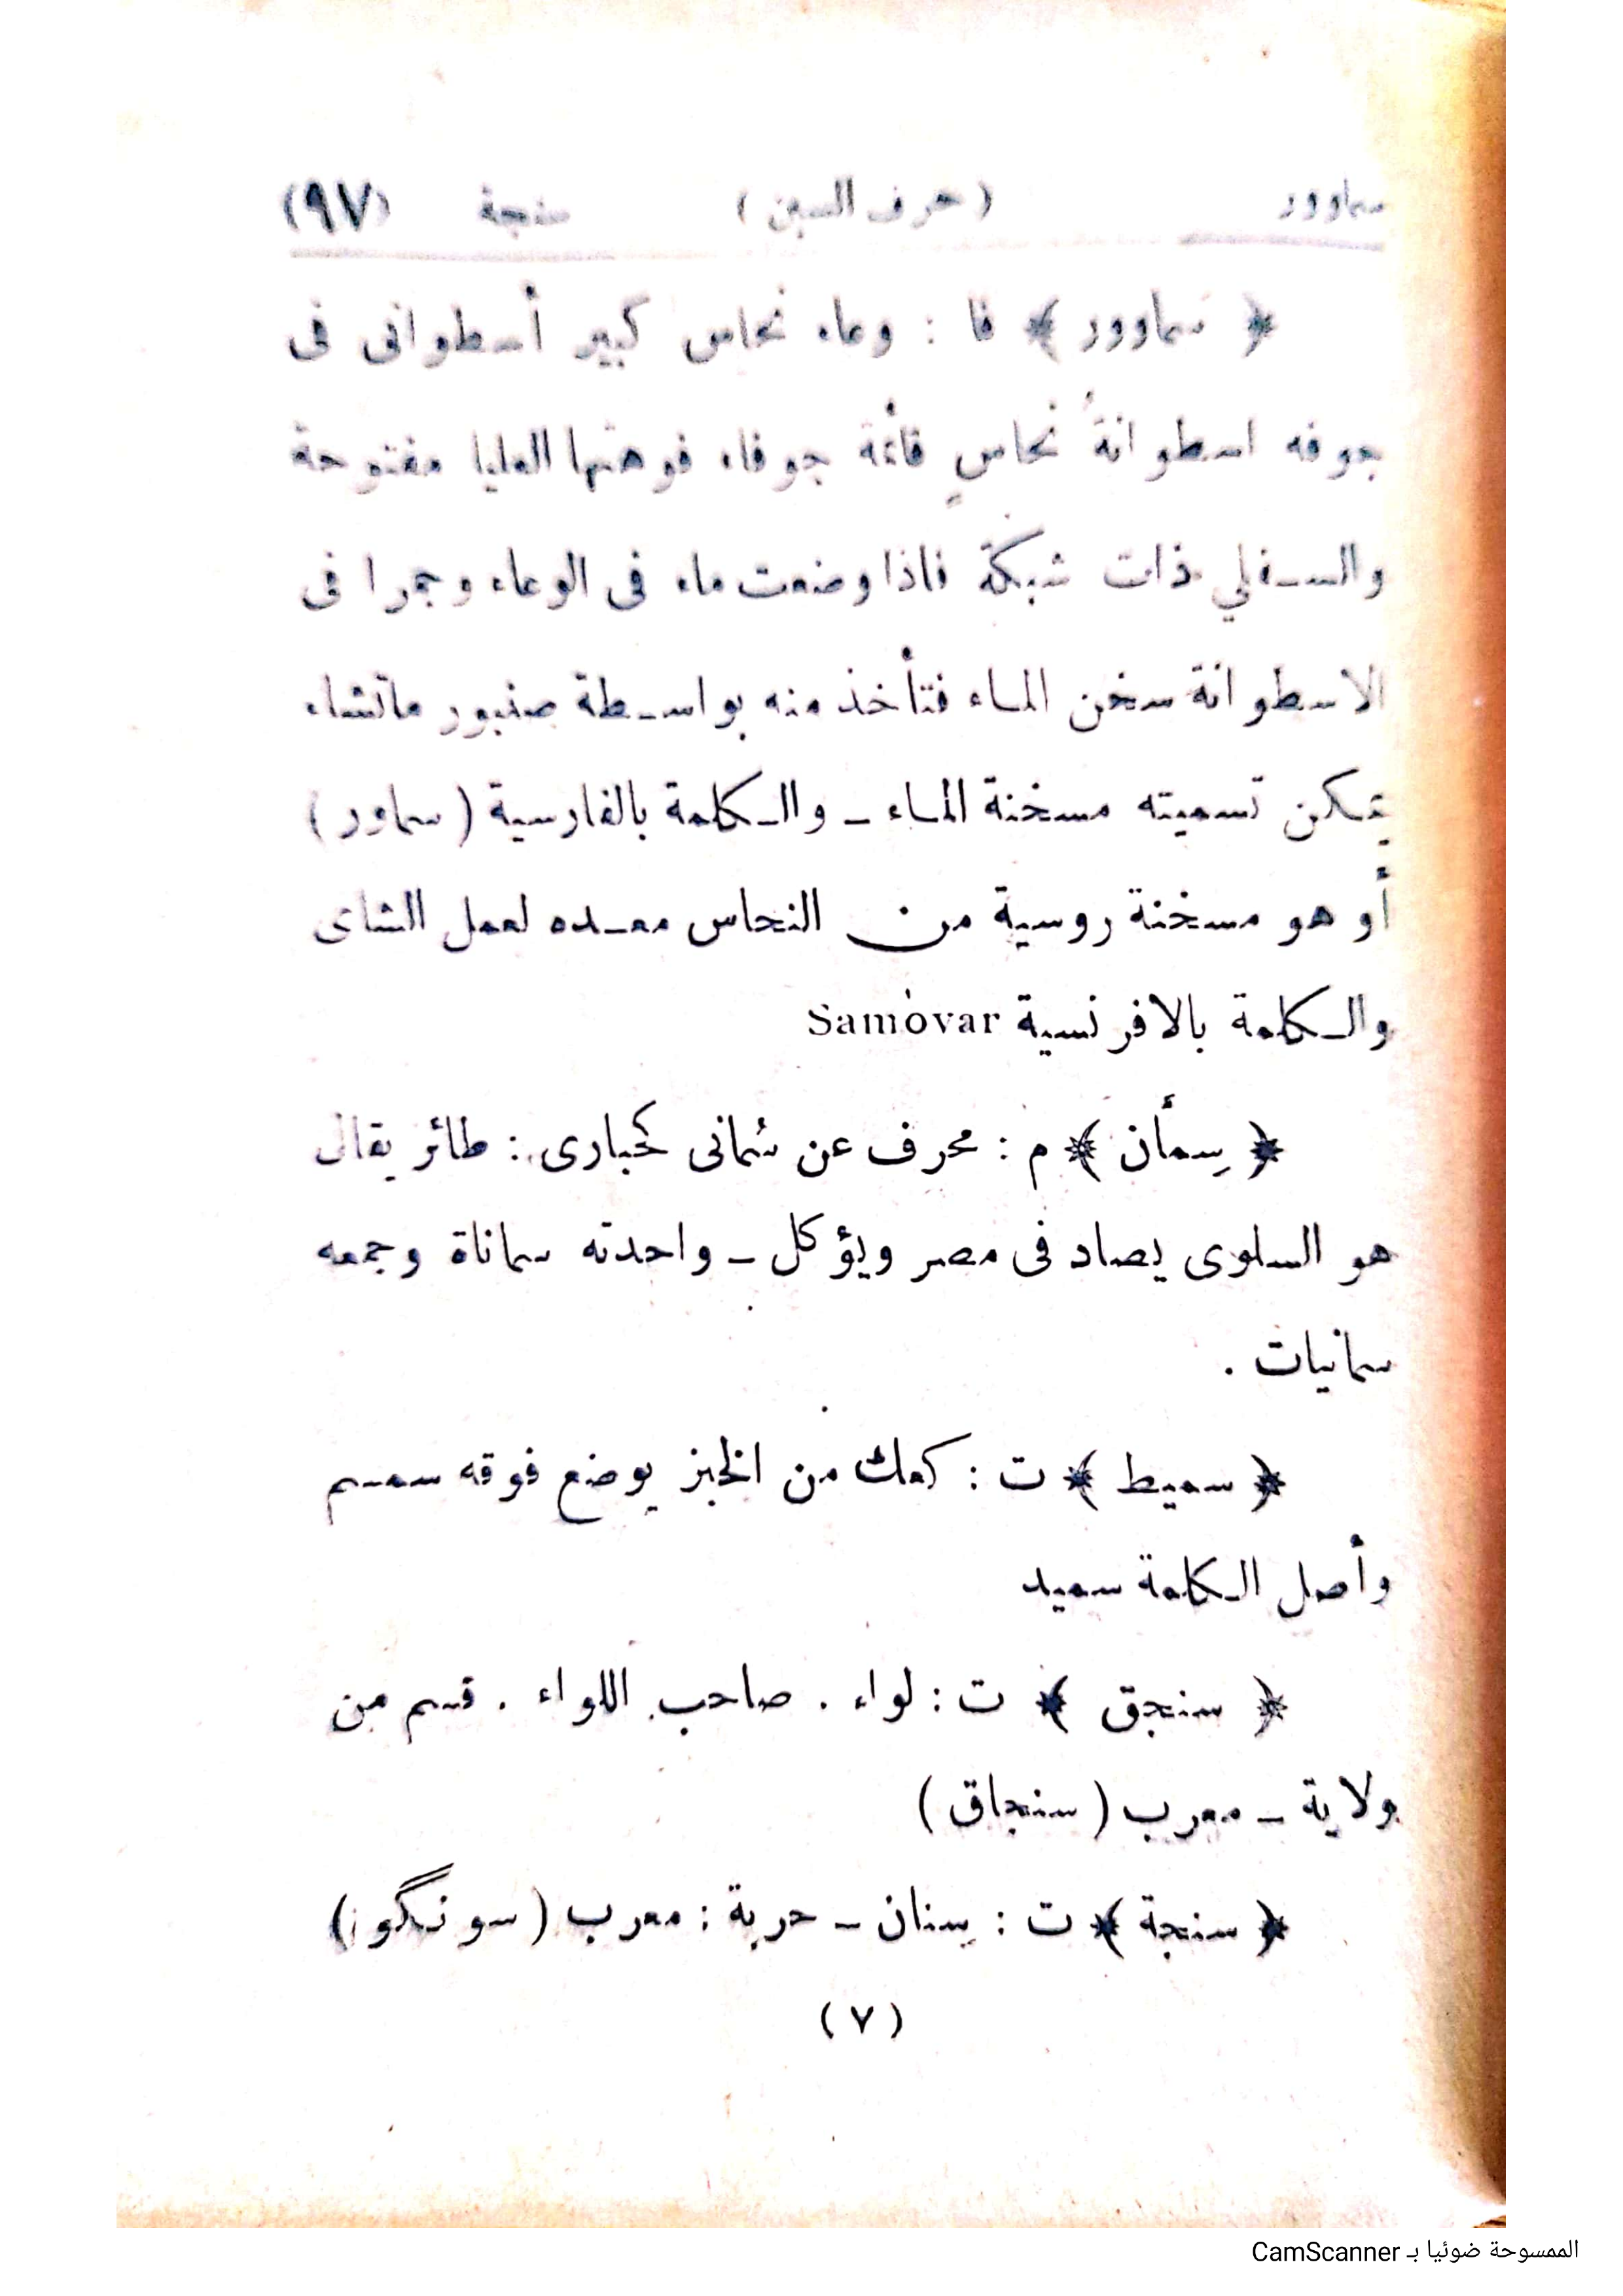 سماوور ( حرف السين ) سنجة (٩٧)
﴿ سماوور ﴾ فا : وعاء نحاس كبير أسطوانى فى
جوفه اسطوانةُ نحاسٍ قائمة جوفاء فوهتها العليا مفتوحة
والسفلي ذات شبكة فاذا وضعت ماء فى الوعاء وجمرا فى
الاسطوانة سخن الماء فتأخذ منه بواسطة صنبور ماتشاء
يمكن تسميته مسخنة الماء ــ والكلمة بالفارسية ( سماور )
أو هو مسخنة روسية من النحاس معده لعمل الشاى
والكلمة بالافرنسية Samovar
﴿ سِمأن ﴾ م : محرف عن سُمانى كحبارى : طائر يقال
هو السلوى يصاد فى مصر ويؤكل ــ واحدته سماناة وجمعه
سمانيات .
﴿ سميط ﴾ ت : كعك من الخبز يوضع فوقه سمسم
وأصل الكلمة سميد
﴿ سنجق ﴾ ت : لواء . صاحب اللواء . قسم من
ولاية ــ معرب ( سنجاق )
﴿ سنجة ﴾ ت : سِنان ــ حربة : معرب ( سونگو )
( ٧ )
الممسوحة ضوئيا بـ CamScanner